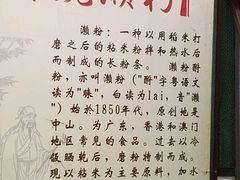 濑粉
濑粉：一种以用粘米打
磨之后的粘米粉拌和热水后
而制成的长粉条。 濑粉亦酹
粉，亦叫濑粉（"酹"字粤语文
读为"赖"，白读为lai，音"濑
"）始於1850年代，原创地是
中山。为广东，香港和澳门
地区常见的食品。过去以冷
饭晒乾后，磨粉特制而成。
现以粘米为主要原料，加水